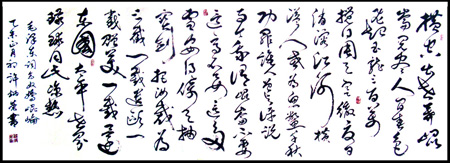 横空出世莽崐
崘阅尽人间春色
飞起玉龙三百万
搅得周天寒彻夏日
消溶江河横
溢人或为鱼鳖千秋
功罪谁人曾与评说
而今我谓崐崘不要
这高不要这多
雪安得倚天抽
宝剑把汝裁为
三截一截遗欧一
截赠美一截还
东国太平世界
环球同此凉热
毛泽东词念奴娇崐崘
正月初许书